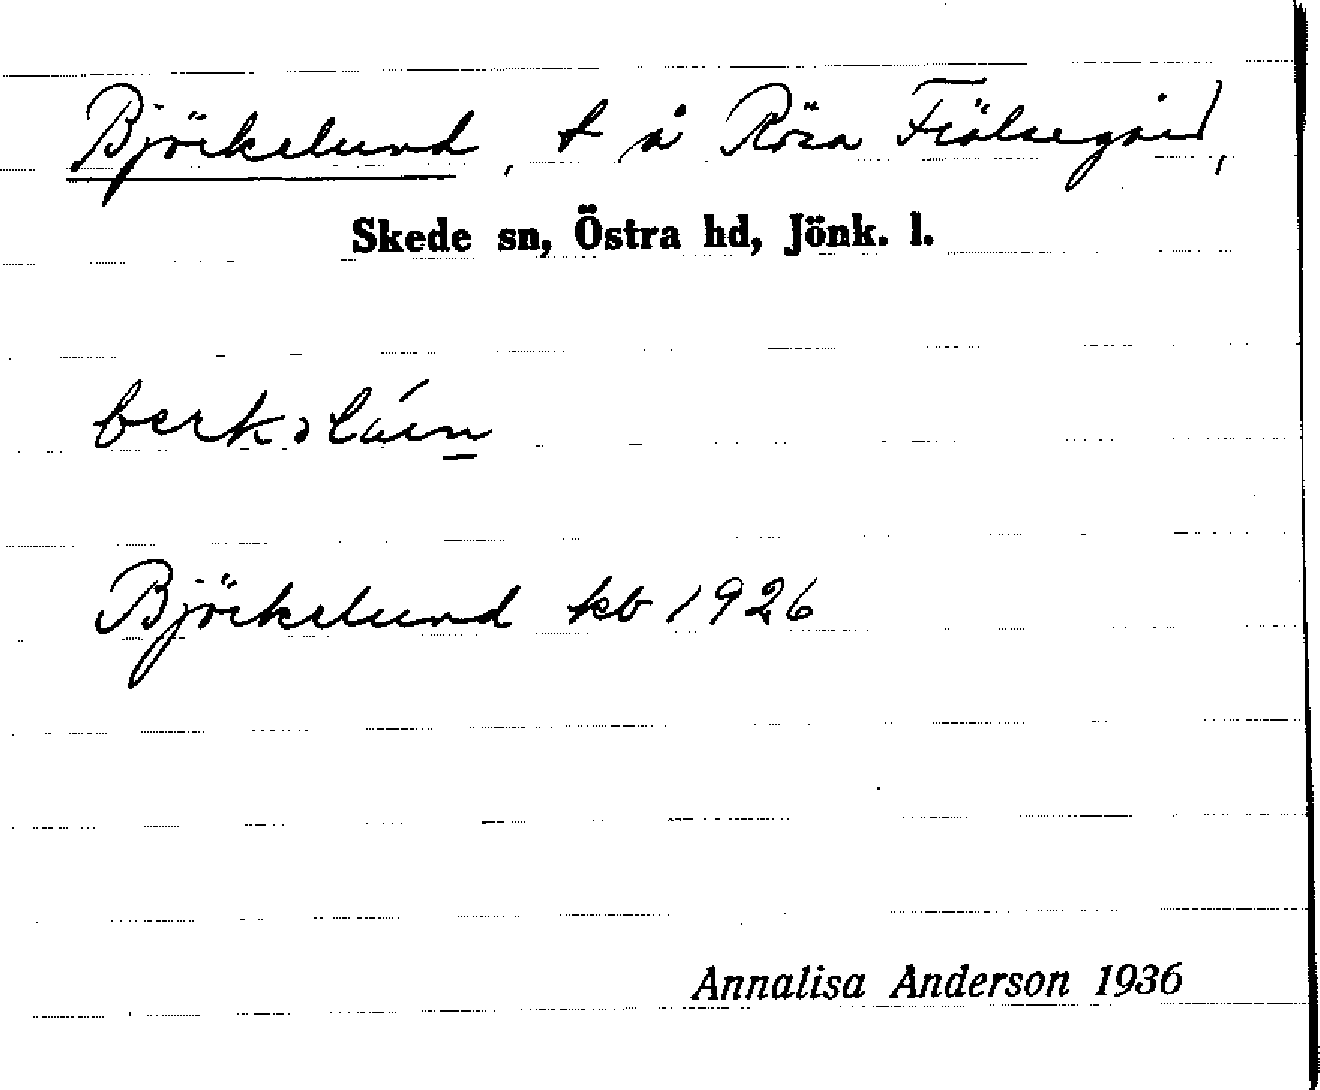 Björkelund, t å Röza Frälsegård,
Skede sn, Östra hd, Jönk. l.
Björkelund kb 1926
Annalisa Anderson 1936